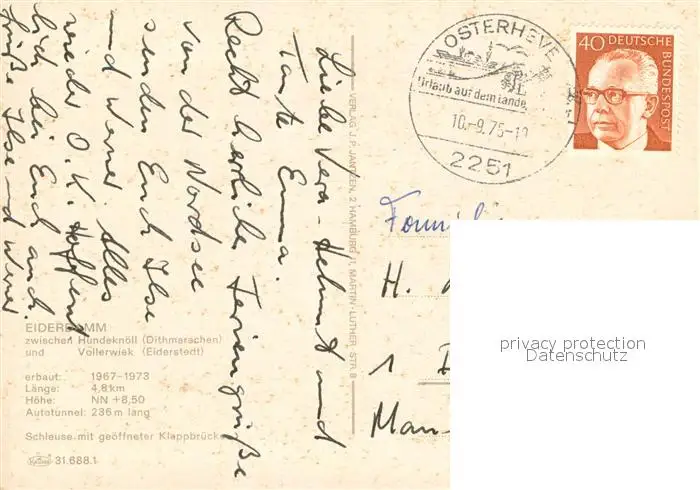 Liebe Vera - Helmut und
Tante Emma.
Recht herzliche Feriengrüße
von der Nordsee
senden Euch Ilse
und Werner. Alles
wieder O.K. Hoffent
lich bei Euch auch.
Grüße Ilse und Werner
VERLAG J. P. JANZEN, 2 HAMBURG 11, MARTIN-LUTHER-STR. 8
OSTERHEVER
Urlaub auf dem Lande
10.-9.75-
2251
40 DEUTSCHE
BUNDESPOST
H.
1
Man
EIDERDAMM
zwischen Hundeknöll (Dithmarschen)
und Vollerwiek (Eiderstedt)
erbaut: 1967-1973
Länge: 4,8 km
Höhe: NN +8,50
Autotunnel: 236 m lang
Schleuse mit geöffneter Klappbrücke
31.688.1
privacy protection
Datenschutz